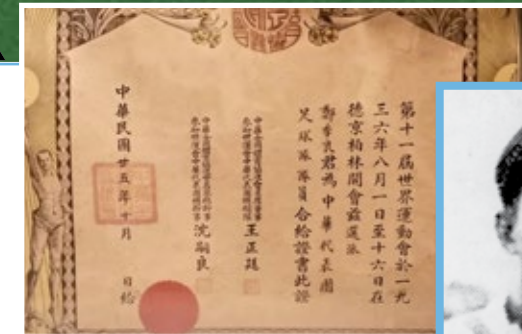 第十一屆世界運動會於一九
三六年八月一日至十六日在
德京柏林開會茲選派
鄭季良君為中華代表團
足球隊隊員合給證書此證
王正廷
沈嗣良
中華民國廿五年十月 日給